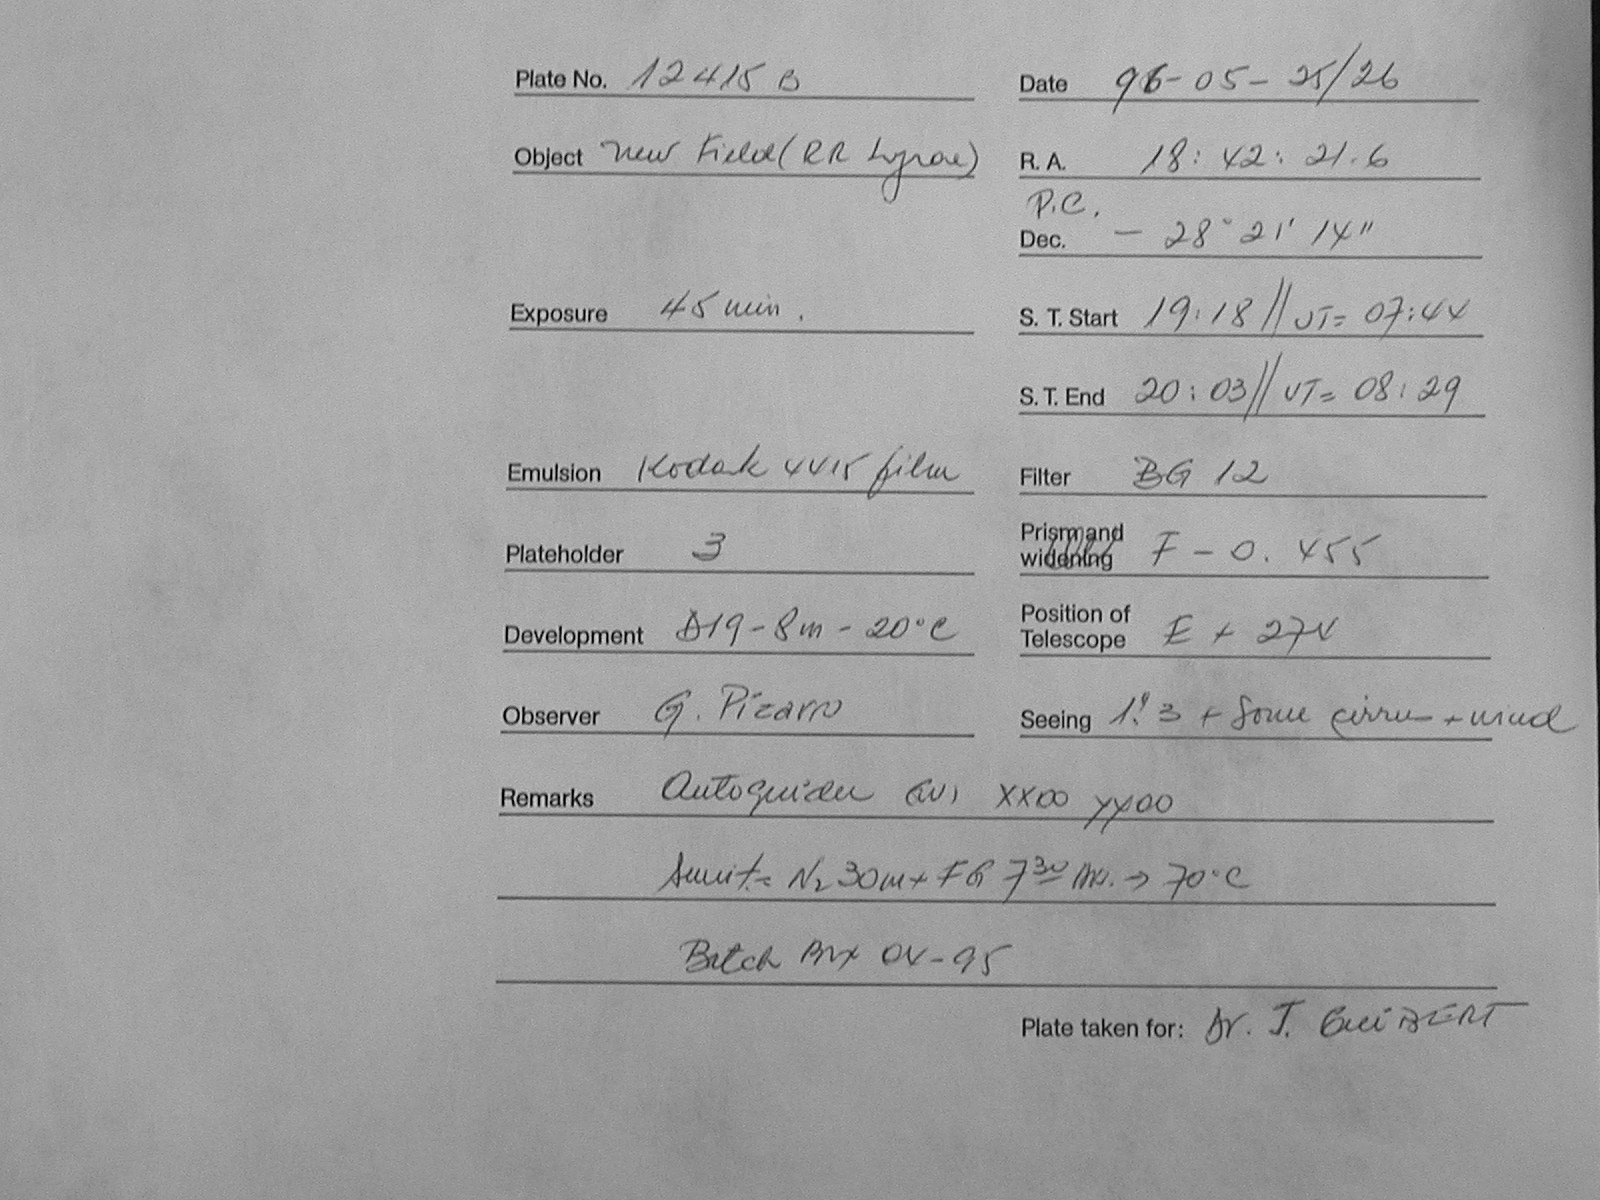 Plate No. 12415 B
Date 96-05-25/26
Object New Field (RR Lyrae)
R. A. 18: 42: 21.6
P.C.
Dec. - 28° 21' 14"
Exposure 45 min.
S. T. Start 19:18 // UT= 07:44
S. T. End 20:03 // UT= 08:29
Emulsion Kodak 4415 film
Filter BG 12
Plateholder 3
Prism and widening F - 0.455
Development D19 - 8m - 20°C
Position of Telescope E + 274
Observer G. Pizarro
Seeing 1".3 + some cirrus + wind
Remarks Autoguider XX00 YY00
N2 30m + FG 7 30 → 70°C
Batch 04-95
Plate taken for: Dr. J. GUIBERT